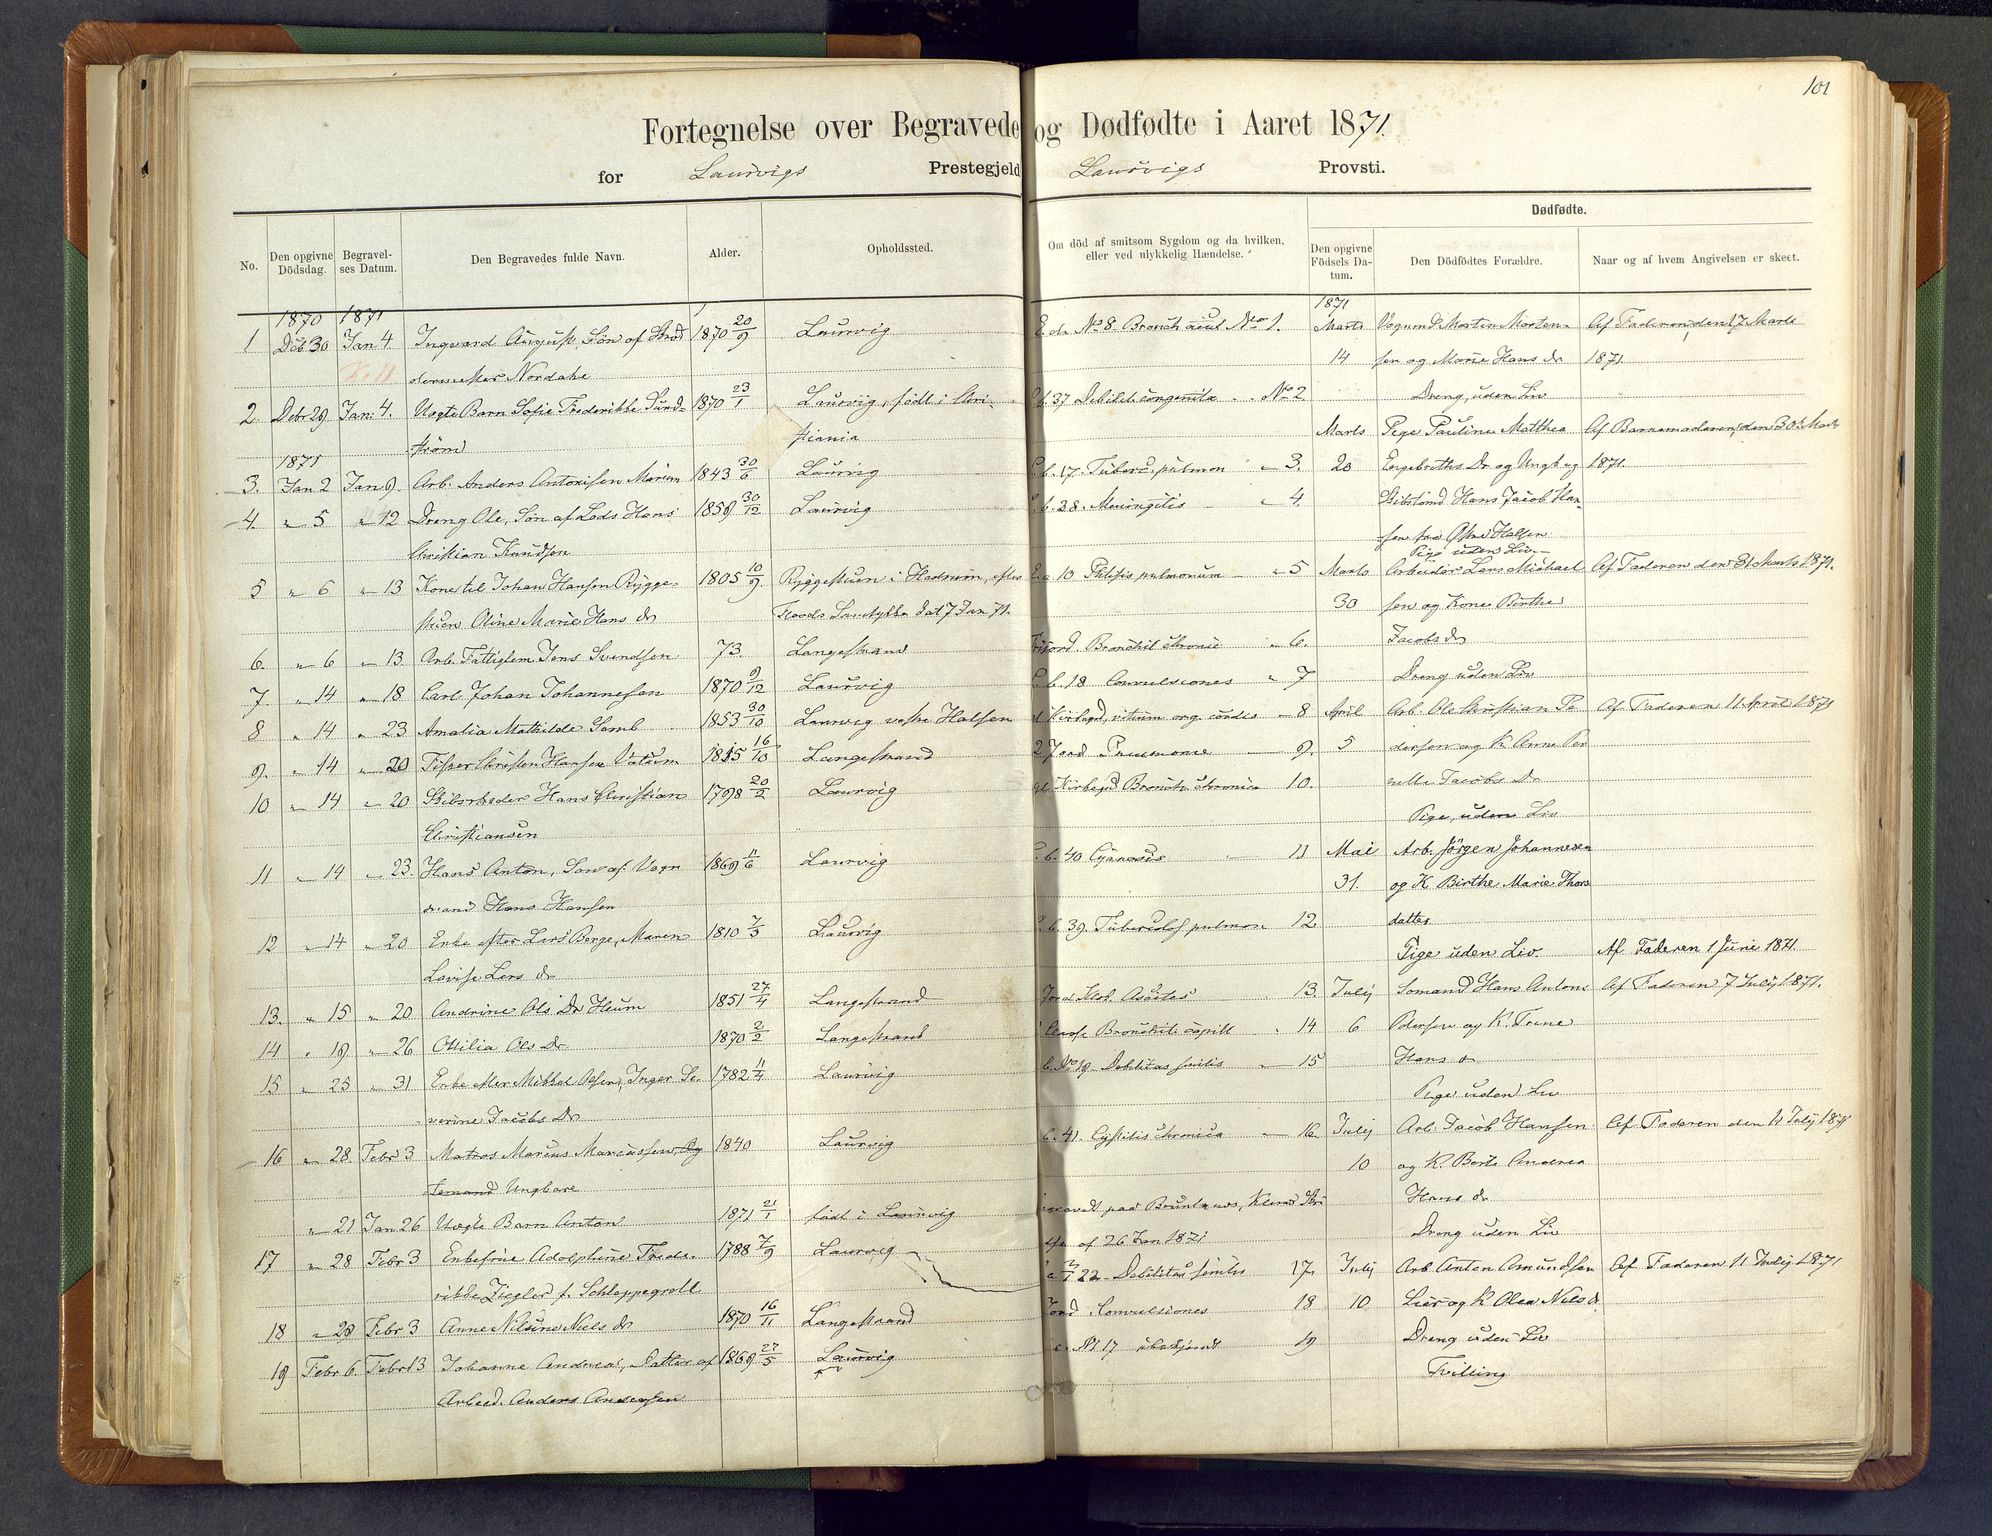 101
Fortegnelse over Begravede og Dødfødte i Aaret 1871.
for Laurvigs Prestegjeld Laurvigs Provsti.
No. Den opgivne Dödsdag. Begravelses Datum. Den Begravedes fulde Navn. Alder. Opholdssted. Om död af smitsom Sygdom og da hvilken, eller ved ulykkelig Hændelse. Dødfødte. Den opgivne Födsels Datum. Den Dödfödtes Forældre. Naar og af hvem Angivelsen er skeet.
1870 1871
1 Deb 30 Jan 4. Ingvard August, Søn af
dermester Nordahl 1870 20/9 Laurvig No 8. Bronch acut No 1.
2. Debr 29 Jan: 4. Uægte Barn Sofie Frederikke Sund-
strøm 1870 23/1 Laurvig, født i Chri-
stiania b. 37 Debilit. congenita No 2
1871
3. Jan 2 Jan 9. Arb. Anders Antonisen 1843 30/6 Laurvig b. 17. Tuberc. pulmon " 3.
4. " 5 " 12 Dreng Ole, Søn af Lods Hans
Christian Knudsen 1859 30/12 Laurvig b. 28. Meningitis " 4.
5 " 6 " 13 Kone til Johan Hansen Rygge-
stuen Oline Marie Hans dr 1805 10/9. Ryggestuen i Hedrum, efter
Samtykke dat 7 Jan 71. a 10 Phtisis pulmonum " 5
6. " 6 " 13. Arb. Fattiglem Jens Svendsen 73. Langestrand Bronchit chronic " 6.
7. " 14 " 18 Carl Johan Johannesen 1870 9/12 Laurvig b. 18 Convulsiones " 7
8 " 14 " 23 Amalia Mathilde Semb 1853 30/10 Laurvig vestre Halsen Kirkegd, vitium org. cordis " 8
9. " 14 " 20 Christen Hansen 1815 16/10 Langestrand Jord Pneumonie " 9.
10 " 14 " 20 Skibsreder Hans Christian
Christiansen 1798 20/2 Laurvig gl. Kirkegd Bronch. chronica 10.
11 " 14 " 23. Hans Anton, Søn af Vogn
mand Hans Hansen 1869 11/6 Laurvig b. 40 Cyanosis " 11
12 " 14 " 20 Enke efter Lars Berge, Maren
Lovise Lars dr 1810 7/3 Laurvig b. 39. Tuberculos pulmon 12.
13. " 15 " 20 Andrine Ols Dr Heum 1851 27/4 Langestrand Jord Ascites 13.
14 " 19 " 26 Ottilia Ols Dr 1870 2/2 Langestrand Bronchit. capill " 14
15 " 25 " 31 Enke efter Mikkel Olsen, Inger Se-
verine Jacobs Dr 1782 11/4 Laurvig b. No 19 Debilitas senilis " 15
16 " 28. Febr 3 Matros Marcus Marcussen,
Ungkarl 1840 Laurvig b. 41. Cystitis chronica " 16
" 21 Jan 26 Uægte Barn Anton 1871 21/1 født i Laurvig
af 26 Jan 1871
17 " 28 Febr 3 Enkefrue Adolphine Frede-
rikke Ziegler f. Schleppegrell 1788 7/9 Laurvig 22 Debilitas senilis 17.
18 " 28 Febr 3 Anne Niels dr 1870 16/11 Langestrand Jord. Convulsiones 18
19 Febr 6. Febr 13 Johanne Andrea, Datter af
Arbeid. Anders Andersen 1869 27/5 Laurvig No 17 ubekjendt 19
1871
Marts 14 Vognmd Morten Morten-
sen og Marie Hans dr
Dreng, uden Liv Af Faderen, den 17 Marts
1871.
Marts 20 Pige Pauline Matthea
Engebreths Dr og Ungk og
Skibstømd Hans Jacob Han-
sen fra Østre Halsen
Pige uden Liv Af Barnemoderen, den 30te Marts
1871.
Marts 30 Arbeider Lars Michael
sen og Kone Birthe
Jacobs dr
Dreng uden Liv Af Faderen den 31 Marts 1871.
April 5 Arb. Ole Christian Pe
dersen og K. Anne Per
nille Jacobs Dr
Pige, uden Liv Af Faderen 11 April 1871
Mai 31. Arb. Jørgen Johannesen
og K Birthe Marie Thors
datter
Pige uden Liv. Af Faderen 1 Juni 1871.
Julij 6 Sømand Hans Anton
Pedersen og K. Trine
Hans d
Pige uden Liv Af Faderen 7 Julij 1871.
Julij 10 Arb. Jacob Hansen
og K. Berte Andrea
Hans dr
Dreng uden Liv Af Faderen den 11 Julij 1871
Julij 10. Arb Anton Amundsen
Lier og K Olea Niels d.
Dreng uden Liv
Tvilling Af Faderen 11 Julij 1871